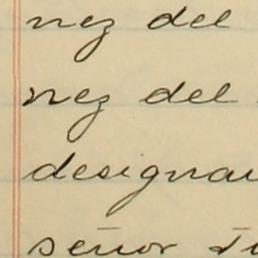 nez del
nez del
designa
señor